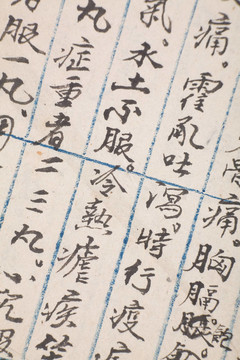 骨痛。胸膈脹
痛。霍乱吐瀉。時行疫
氣。水土不服。冷熱瘧疾
丸症重者二三丸。小兒
服一丸。